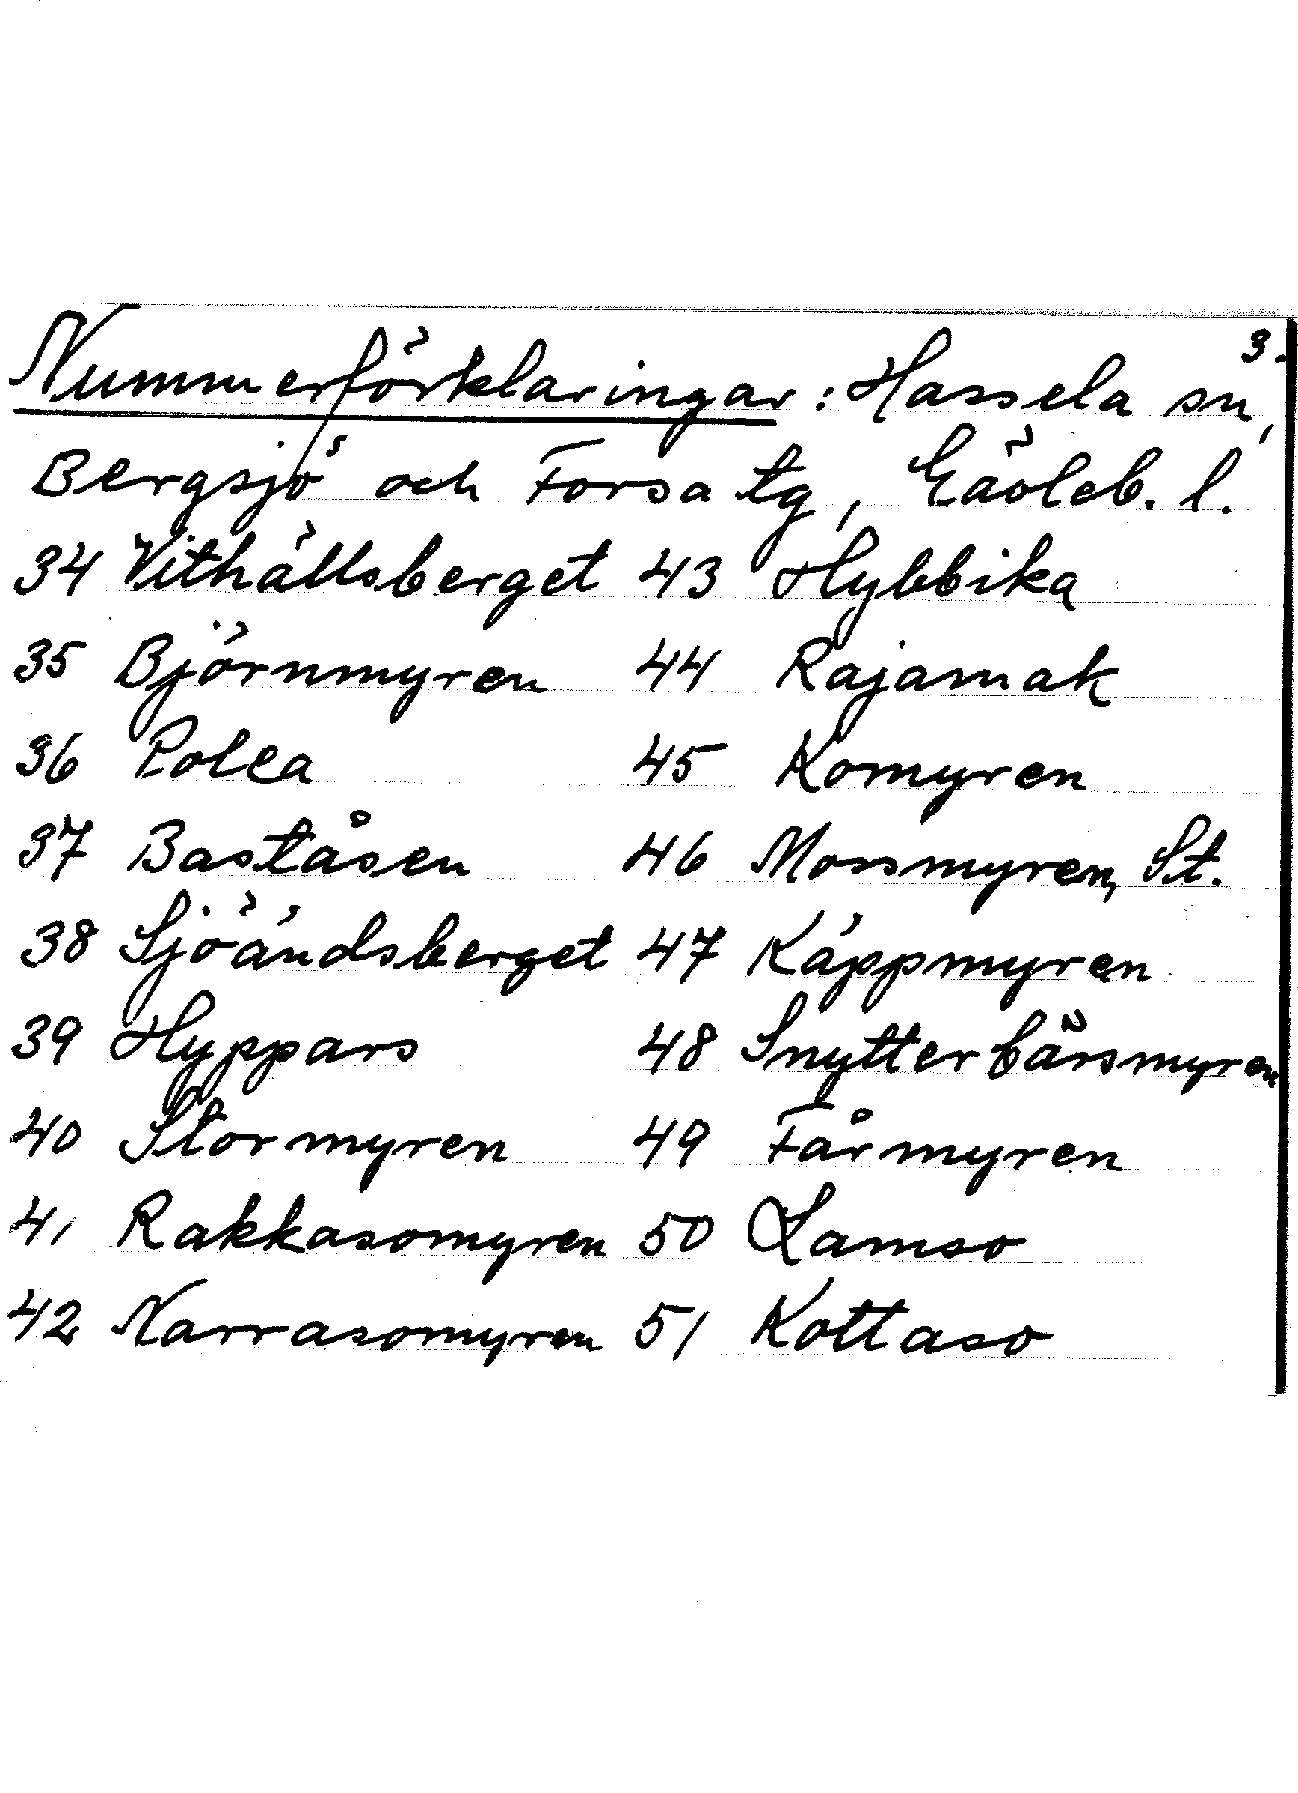 3.
Nummerförklaringar: Hassela sn,
Bergsjö och Forsa tg, Gävleb. l.
34 Vithällsberget 43 Hybbika
35 Björnmyren 44 Rajamak
36 Polea 45 Komyren
37 Baståsen 46 Mossmyren, St.
38 Sjöändsberget 47 Käppmyren
39 Hyppars 48 Snytterbärsmyren
40 Stormyren 49 Fårmyren
41 Rakkasomyren 50 Lamso
42 Narrasomyren 51 Kottaso